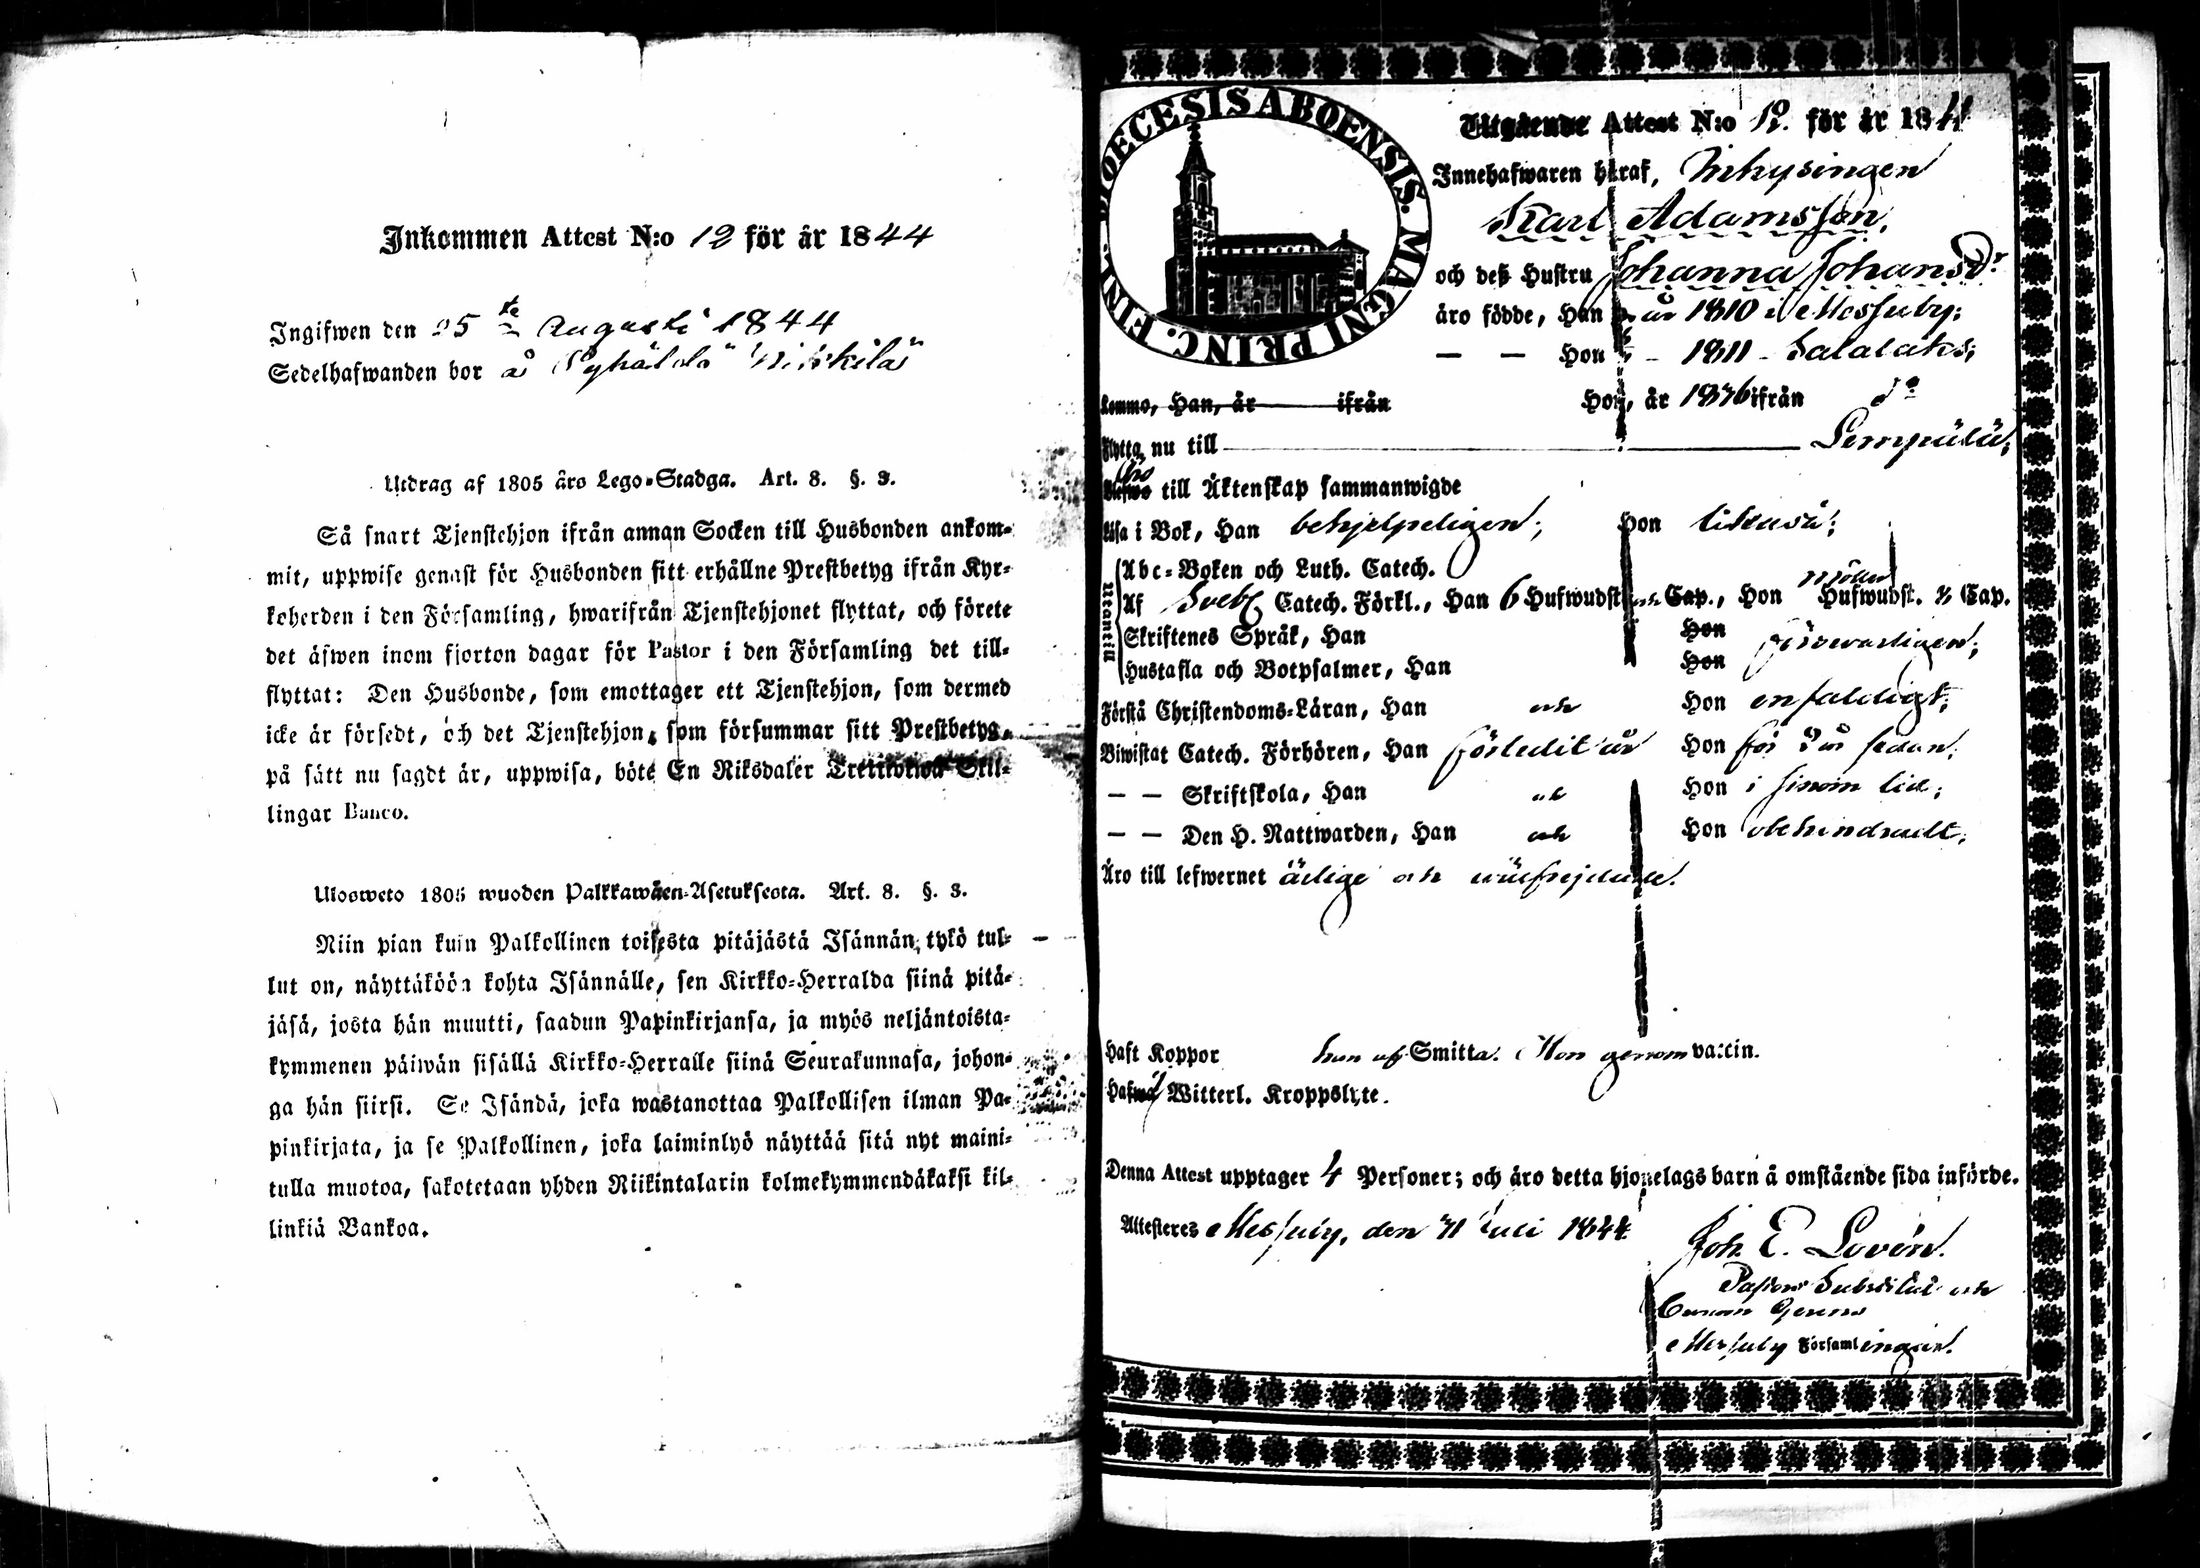 Inkommen Attest N:o 12 för år 1844
Ingifwen den 25 te Augusti 1844
Sedelhafwanden bor å Pyhäldö Nikkilä
Utdrag af 1805 års Lego-Stadga. Art. 8. §. 3.
Så snart Tjenstehjon ifrån annan Socken till Husbonden ankom-
mit, uppwise genast för Husbonden sitt erhållne Prestbetyg ifrån Kyr-
koherden i den Församling, hwarifrån Tjenstehjonet flyttat, och förete
det äfwen inom fjorton dagar för Pastor i den Församling det till-
flyttat: Den Husbonde, som emottager ett Tjenstehjon, som dermed
icke är försedt, och det Tjenstehjon, som försummar sitt Prestbetyg,
på sätt nu sagdt är, uppwisa, böte En Riksdaler Trettiotwå Skil-
lingar Banco.
Ulosweto 1805 wuoden Palkkawäen-Asetuksesta. Art. 8. §. 3.
Niin pian kuin Palkollinen toisesta pitäjästä Isännän tykö tul-
lut on, näyttäköön kohta Isännälle, sen Kirkko-Herralda siinä pitä-
jäsä, josta hän muutti, saadun Papinkirjansa, ja myös neljäntoista-
kymmenen päiwän sisällä Kirkko-Herralle siinä Seurakunnasa, johon-
ga hän siirsi. Se Isändä, joka wastanottaa Palkollisen ilman Pa-
pinkirjata, ja se Palkollinen, joka laiminlyö näyttää sitä nyt maini-
tulla muotoa, sakotetaan yhden Riikintalarin kolmekymmendäkaksi kil-
linkiä Bankoa.
DIOECESIS ABOENSIS. MAGNI PRINC. FINL.
Utgående Attest N:o 12. för år 1844
Innehafwaren häraf, Inhysingen
Karl Adamsson,
och dess Hustru Johanna Johansdr
äro födde, Han år 1810 i Messuby;
— — Hon 1811 - Salalaks;
Kommo, Han, år ifrån Hon, år 1836 ifrån do
Flytta nu till Lempälä;
Äro till Äktenskap sammanwigde
Läsa i Bok, Han behjelpeligen; Hon likaså;
Abc-Boken och Luth. Catech.
Af Sveb. Catech. Förkl., Han 6 Hufwudst. och Cap., Hon Hufwudst. Cap.
Skriftenes Språk, Han Hon
Hustafla och Botpsalmer, Han Hon försvarligen;
Förstå Christendoms-Läran, Han och Hon enfaldigt;
Biwistat Catech. Förhören, Han förledit år Hon för 2 år sedan;
— — Skriftskola, Han och Hon i sinom tid;
— — Den H. Nattwarden, Han och Hon obehindradt;
Äro till lefwernet ärlige och välfrejdade.
Haft Koppor han af Smitta. Hon genom vaccin.
Witterl. Kroppslyte.
Denna Attest upptager 4 Personer; och äro detta hjonelags barn å omstående sida införde.
Attesteres Messuby, den 31 Juli 1844
Joh. E. Lovén.
Pastors Substitut och
Messuby Församlingar.